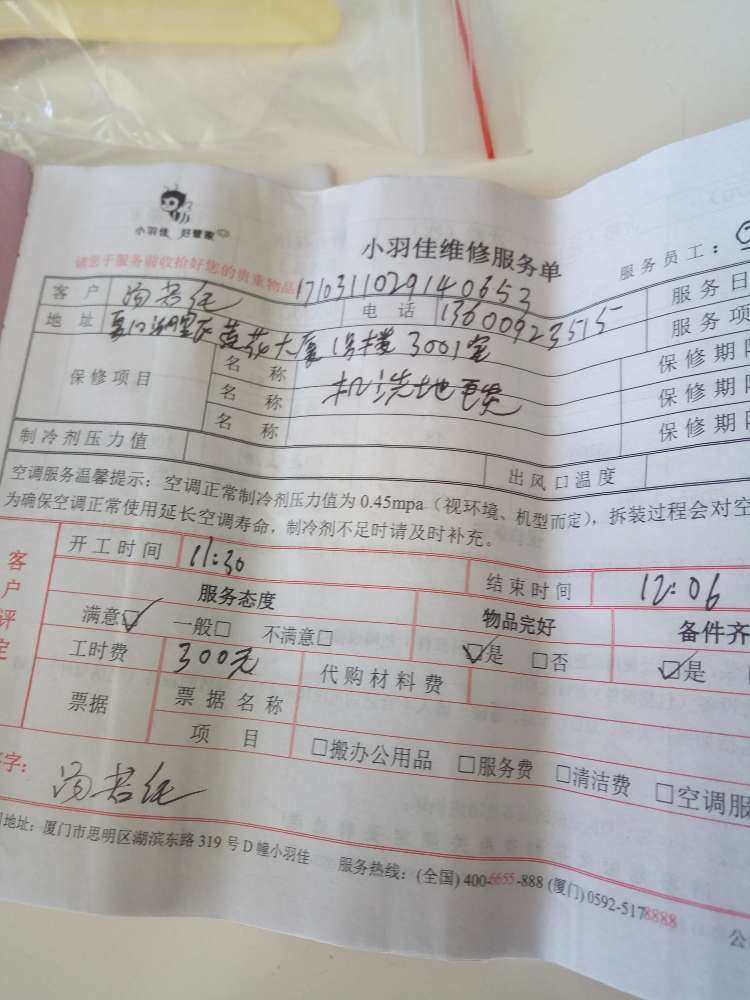 小羽佳 好管家
小羽佳维修服务单
服务员工:
请您于服务前收拾好您的贵重物品
171031102914 0653
客户
电话 13600923515
服务日
地址 大厦 3001室
服务项
保修项目
名称 机洗地毯
名称
名称
保修期限
保修期限
保修期限
制冷剂压力值
出风口温度
空调服务温馨提示:空调正常制冷剂压力值为 0.45mpa(视环境、机型而定),拆装过程会对空
为确保空调正常使用延长空调寿命,制冷剂不足时请及时补充。
客户评定
开工时间 11:30
结束时间 12:06
服务态度
物品完好
备件齐
满意☑ 一般□ 不满意□
☑是 □否
☑是
工时费 300元
代购材料费
票据
票据名称
项目 □搬办公用品 □服务费 □清洁费 □空调服
字:
地址:厦门市思明区湖滨东路 319 号 D 幢小羽佳 服务热线:(全国) 400-6655-888 (厦门) 0592-5178888
公